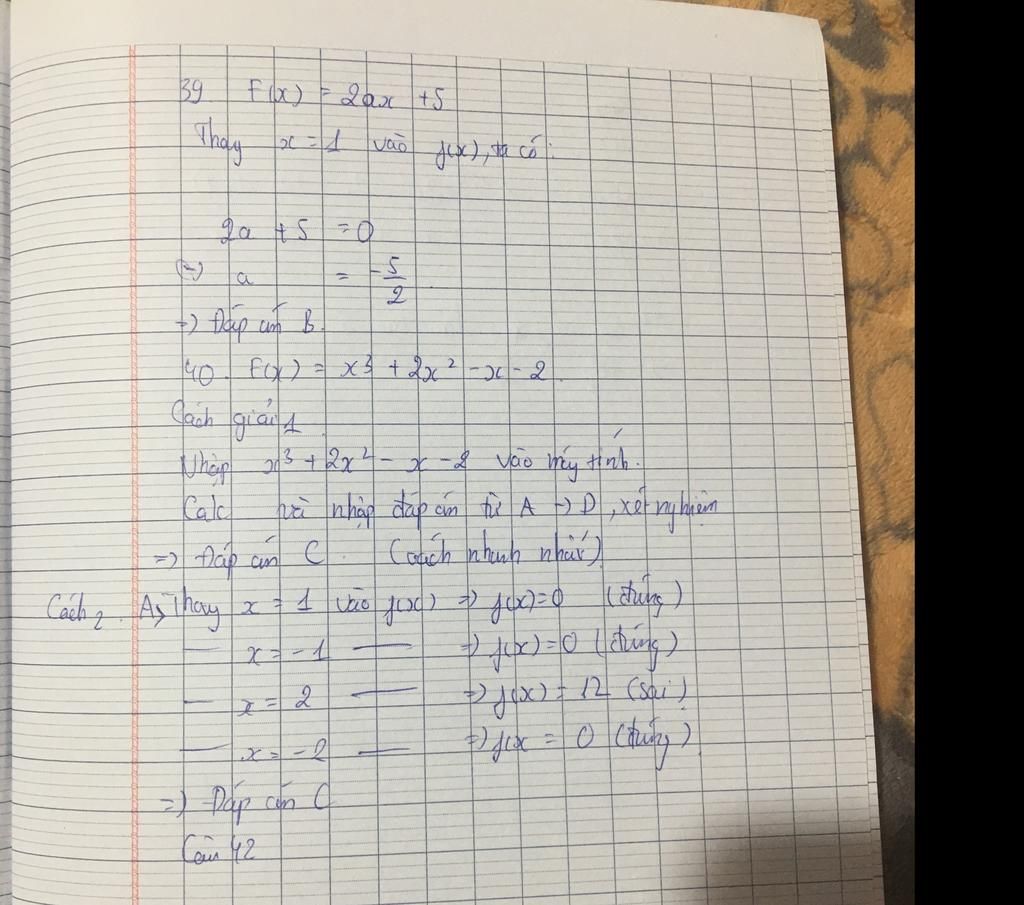 39. F(x) = 2ax + 5
Thay x = 1 vào f(x), ta có:
2a + 5 = 0
(=) a = -5/2
=) Đáp án B.
40. F(x) = x³ + 2x² - x - 2
Cách giải 1
Nhập x³ + 2x² - x - 2 vào máy tính.
Calc và nhập đáp án từ A -> D, xét nghiệm
=) Đáp án C. (cách nhanh nhất)
Cách 2. A, Thay x = 1 vào f(x) => f(x) = 0 (đúng)
— x = -1 — =) f(x) = 0 (đúng)
— x = 2 — => f(x) = 12 (sai)
— x = -2 — =) f(x = 0 (đúng)
=) Đáp án C
Câu 42